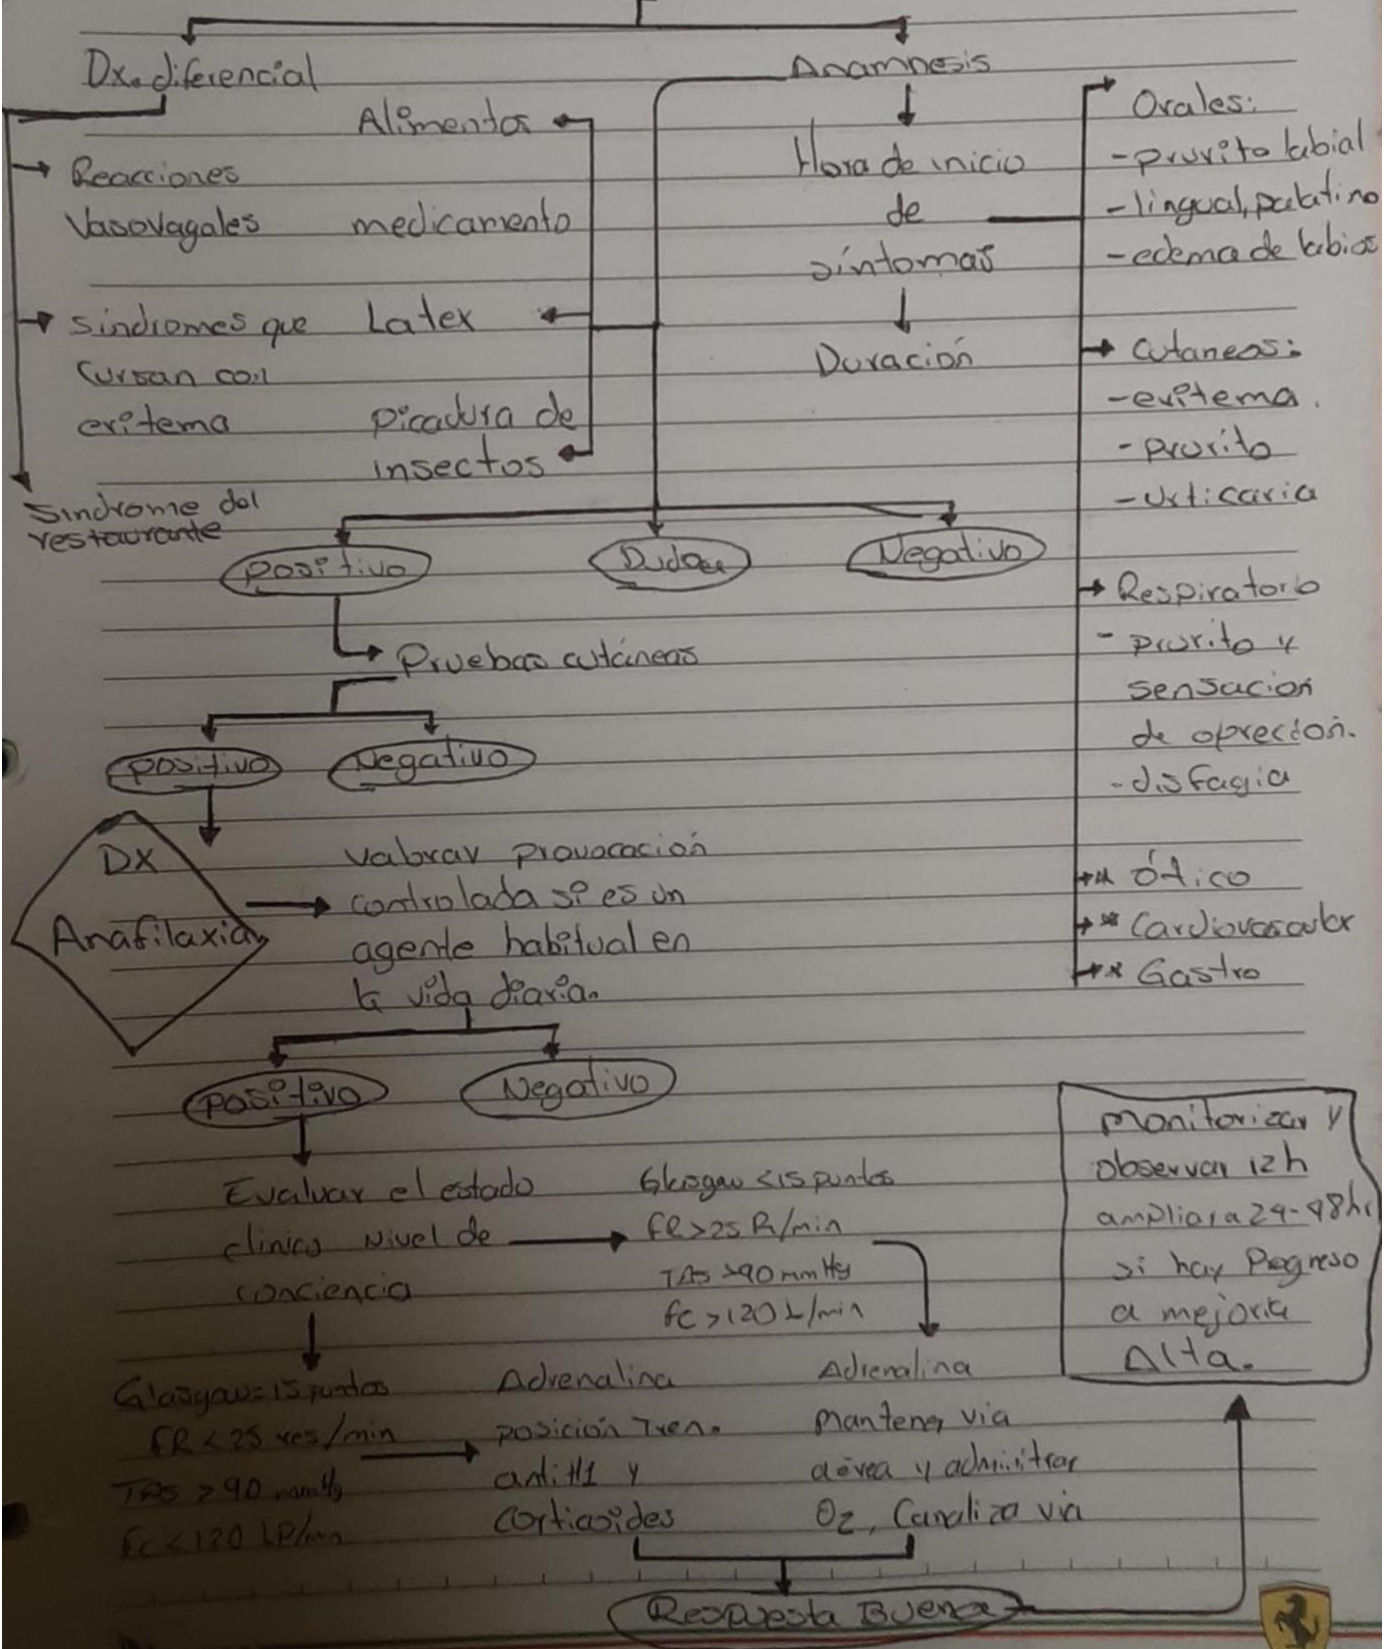 Dx. diferencial
Reacciones
Vasovagales
sindromes que
Cursan con
eritema
Sindrome del
restaurante
Alimentos
medicamento
Latex
picadura de
insectos
Anamnesis
Hora de inicio
de
sintomas
Duración
Orales:
- prurito labial
- lingual, palatino
- edema de labios
Cutaneos:
- eritema.
- prurito
- Urticaria
Respiratorio
- prurito y
sensacion
de opreción.
- disfagia
Ótico
Cardiovascular
Gastro
Positivo
Negativo
Pruebas cutáneas
positivo
Negativo
DX
Anafilaxia
Valorar provocación
controlada si es un
agente habitual en
la vida diaria.
Positivo
Negativo
Evaluar el estado
clinico Nivel de
conciencia
Glasgow <15 puntos
FR>25 R/min
TAS >90 mmHg
fc >120 L/min
Glasgow=15 puntos
FR < 25 res/min
TAS > 90 mmHg
fc <120 LP/min
Adrenalina
posición Tren.
antiH1 y
Corticoides
Adrenalina
Mantener via
aérea y
O2, Canaliza via
Respuesta Buena
Monitorizar y
observar 12h
ampliar a 24-48hr
si hay Progreso
a mejoria
Alta.